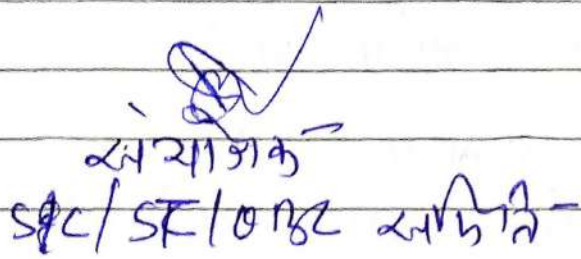 संयोजक
SC/ST/OBC समिति